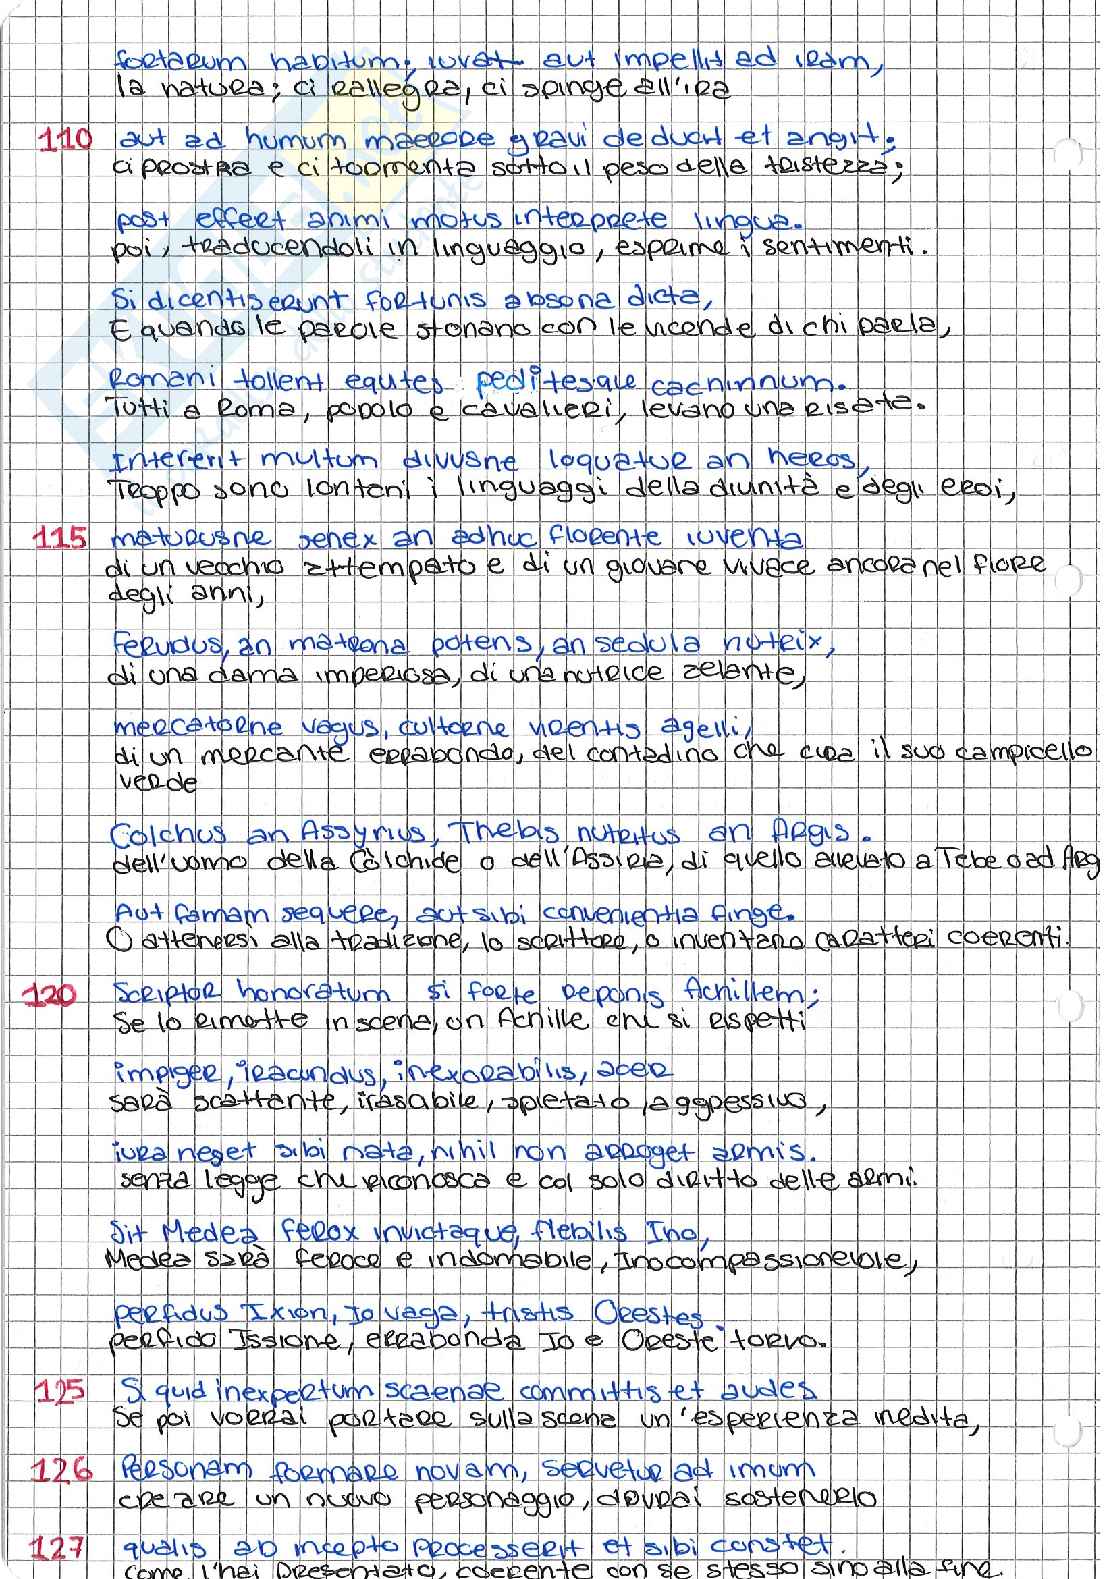 fortarum habitum; iuvat aut impellit ad iram,
la natura; ci rallegra, ci spinge all'ira
110 aut ad humum maerore gravi deducit et angit;
ci prostra e ci tormenta sotto il peso della tristezza;
post effert animi motus interprete lingua.
poi, traducendoli in linguaggio, esprime i sentimenti.
Si dicentis erunt fortunis absona dicta,
E quando le parole stonano con le vicende di chi parla,
Romani tollent equites peditesque cachinnum.
Tutti a Roma, popolo e cavalieri, levano una risata.
Intererit multum divusne loquatur an heros,
Troppo sono lontani i linguaggi della divinità e degli eroi,
115 maturusne senex an adhuc florente iuventa
di un vecchio attempato e di un giovane vivace ancora nel fiore
degli anni,
Fervidus, an matrona potens, an sedula nutrix,
di una dama imperiosa, di una nutrice zelante,
mercatorne vagus, cultorne virentis agelli,
di un mercante errabondo, del contadino che cura il suo campicello
verde
Colchus an Assyrius, Thebis nutritus an Argis.
dell'uomo della Còlchide o dell'Assiria, di quello allevato a Tebe o ad Arg
Aut famam sequere, aut sibi convenientia finge.
O attenersi alla tradizione, lo scrittore, o inventano caratteri coerenti.
120 Scriptor honoratum si forte reponis Achillem;
Se lo rimette in scena, un Achille che si rispetti
impiger, iracundus, inexorabilis, acer
sarà scattante, irasabile, spietato, aggressivo,
iura neget sibi nata, nihil non arroget armis.
senza legge che riconosca e col solo diritto delle armi.
Sit Medea ferox invictaque, flebilis Ino,
Medea sarà feroce e indomabile, Ino compassionevole,
perfidus Ixion, Io vaga, tristis Orestes.
perfido Issione, errabonda Io e Oreste torvo.
125 Si quid inexpertum scaenae committis et audes
Se poi vorrai portare sulla scena un'esperienza inedita,
126 Personam formare novam, servetur ad imum
creare un nuovo personaggio, dovrai sostenerlo
127 qualis ab incepto processerit et sibi constet.
come l'hai presentato, coerente con se stesso sino alla fine